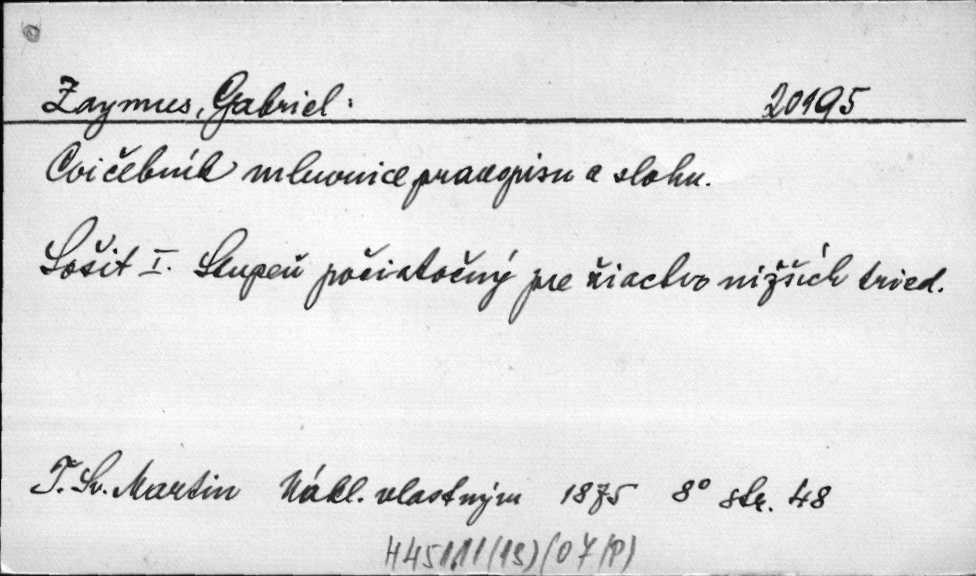 Zaymus, Gabriel: 20195
Cvičebník mluvnice pravopisu a slohu.
Sošit I. Stupeň počiatočný pre žiactvo nižších tried.
T. Sv. Martin Nákl. vlastným 1875 8° str. 48